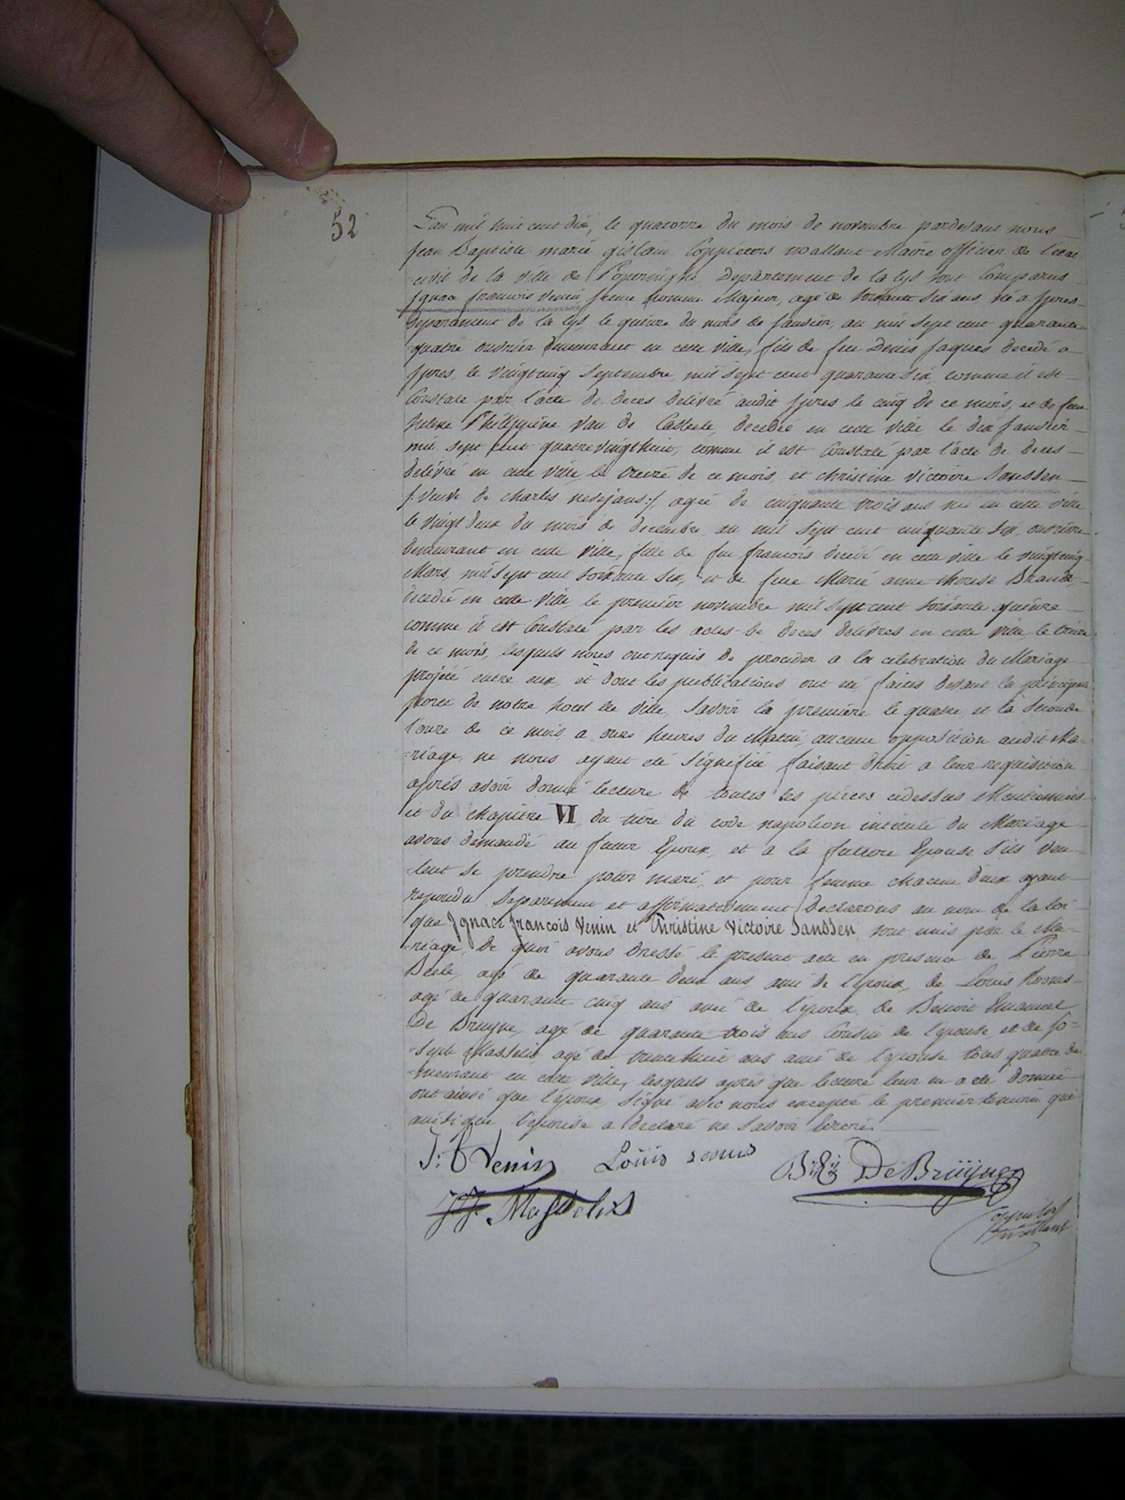 52
L'an mil huit cent dix, le quatorze du mois de novembre pardevant nous
Jean Baptiste marie gislain Coppieters wallant Maire officier de l'etat
civil de la ville de Poperinghe Departement de la lys sont Comparus
Ignace francois Venin, jeune homme Majeur, agé de soixante six ans né a Ypres
departement de la lys le quinze du mois de janvier, an mil sept cent quarante
quatre ouvrier demeurant en cette ville, fils de feu Denis Jaques decedé a
Ypres le vingtcinq Septembre mil sept cent quarante six comme il est
Constaté par l'acte de deces delivré audit Ypres le cinq de ce mois, et de feue
Philippine Van de Casteele decedée en cette ville le dix janvier
mil sept cent quatrevingthuit, comme il est Constaté par l'acte de deces
delivré en cette ville le treize de ce mois, et christine victoire Janssen
/: veuve de charles nedejans :/ agée de cinquante trois ans née en cette ville
le vingt deux du mois de decembre an mil sept cent cinquante six, ouvrière
demeurant en cette ville, fille de feu francois decedé en cette ville le vingtcinq
Mars, mil sept cent soixante six, et de feue Marie anne therese
decedée en cette ville le premier novembre mil sept cent soixante quinze
comme il est Constaté par les actes de deces delivrés en cette ville le treize
de ce mois, lesquels nous ont requis de proceder a la celebration du Mariage
projété entre eux, et dont les publications ont été faites devant la principale
porte de notre hotel de ville, Savoir la premiere le quatre et la seconde
l'onze de ce mois a onze heures du Matin, aucune opposition audit Ma-
riage, ne nous ayant eté signifiée faisant droit a leur requisition
après avoir donné lecture de toutes les pièces cidessus Mentionnées
et du chapitre VI, du titre du code napoleon intitulé du Mariage
avons demandé au futur Epoux, et a la future Epouse s'ils veu-
lent se prendre pour mari, et pour femme chacun d'eux ayant
repondu Separement et affirmativement Declarons au nom de la loi
que Ignace francois Venin et Christine Victoire Janssen, sont unis par le Ma-
riage, de quoi avons dressé le present acte en presence de Pierre
agé de quarante deux ans ami de l'epoux, de Louis
agé de quarante cinq ans ami de l'epoux, de Benoit Emanuel
De Bruyne, agé de quarante trois ans Cousin de l'epouse et de Jo-
seph Masselis agé de trente huit ans ami de l'epouse tous quatre de
meurant en cette ville, lesquels après que lecture leur en a eté donnée
ont ainsi que l'époux signé avec nous excepté le premier temoin qui
ainsi que l'epouse a declaré ne savoir ecrire.
J: f Venin Louis B: E: De Bruijne
J. J. Masselis